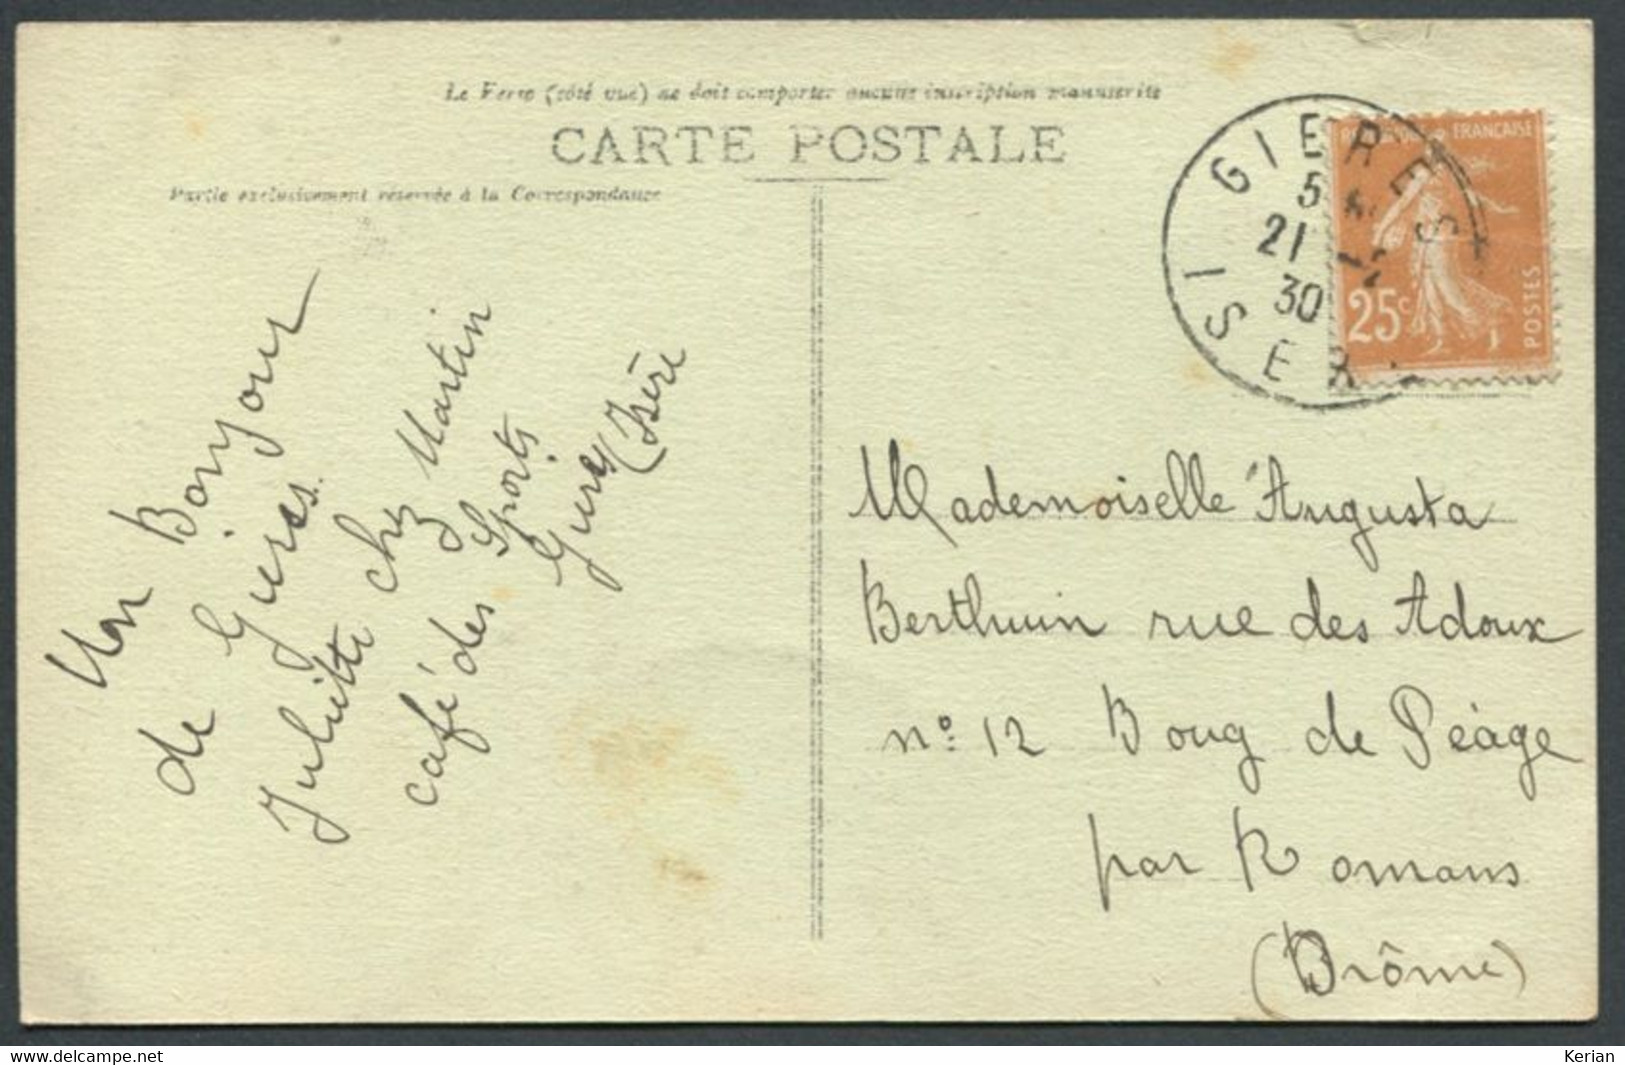 Le Verso (côté vue) ne doit comporter aucune inscription manuscrite
CARTE POSTALE
Partie exclusivement réservée à la Correspondance
GIERES
5
21
30
ISER
FRANCAISE
25c
POSTES
Mon Bonjour
de Gures
Juliette chez Martin
café des Sports
Gures (Isère
Mademoiselle Augusta
Berthuin rue des Adoux
n° 12 Boug de Péage
par Romans
(Drôme)
www.delcampe.net
Kerian